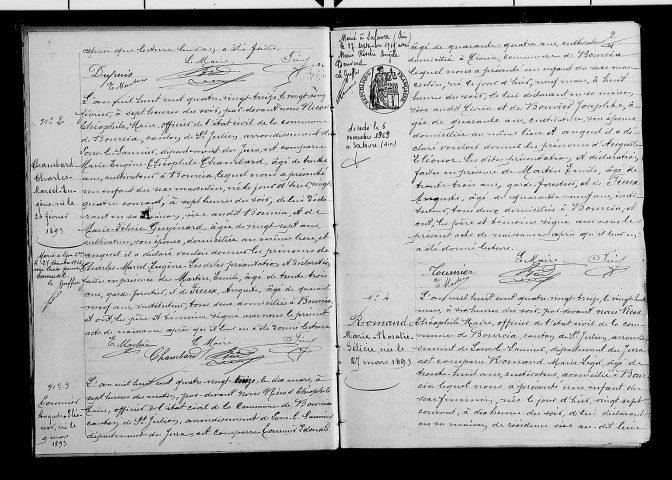 après que lecture leur en a été faite.
Dupuis Le Maire
E. Martin
N° 2
Chambard
Charles
Marcel Eugène
né le
24 février
1893
L'an mil huit cent quatre vingt treize, le vingt cinq
février, à sept heures du soir, par devant nous Nicod
Théophile, Maire, officier de l'état civil de la commune
de Bourcia, canton de St Julien, arrondissement de
Lons-le-Saunier, département du Jura, est comparu
Marie Eugène Théophile Chambard, âgé de trente
ans, cultivateur à Bourcia, lequel nous a présenté
un enfant du sexe masculin, né le jour d'hier, vingt
quatre courant, à sept heures du soir, de lui décla-
rant en sa maison, sise audit Bourcia, et de
Marie âgée de vingt sept ans,
cultivatrice, son épouse, domiciliée au même lieu, et
auquel il a déclaré vouloir donner les prénoms de
Charles Marcel Eugène. Les dites présentation et déclaration
faites en présence de Martin Emile, âgé de trente trois
ans, garde forestier, et de Auguste, âgé de quarante
neuf ans, instituteur, tous deux domiciliés à Bourcia,
et ont, les père et témoins signé avec nous le présent
acte de naissance après qu'il leur en a été donné lecture.
E. Martin Le Maire
Chambard
N° 3
Tournier
né le
9 mars
1893
L'an mil huit cent quatre vingt treize, le dix mars, à
sept heures du matin, par devant nous Nicod Théophile
Maire, officier de l'état civil de la Commune de Bourcia
canton de St Julien, arrondissement de Lons-le-Saunier
département du Jura, est comparu Tournier Edouard
2
Marié à Lalavre (Ain)
le 27 septembre 1918 avec
Marie Rosalie
Le Greffier
décédé le 5
novembre 1963
à (Ain)
âgé de quarante quatre ans, cultivateur
domicilié à Civria, commune de Bourcia
lequel nous a présenté un enfant du sexe mas-
culin, né le jour d'hier, neuf mars, à huit
heures du soir, de lui déclarant en sa maison
sise audit Civria et de Bouvier Josephte, âgée
de quarante ans, cultivatrice, son épouse
domiciliée au même lieu et auquel il a dé-
claré vouloir donner les prénoms d'Auguste
Eléonor. Les dites présentation et déclaration
faites en présence de Martin Emile, âgé de
trente trois ans, garde forestier, et de
Auguste, âgé de quarante neuf ans, insti-
tuteur, tous deux domiciliés à Bourcia, et
ont, les père et témoins signé avec nous le
présent acte de naissance après qu'il leur en
a été donné lecture.
Tournier Le Maire
E. Martin
N° 4
Romand
Marie Rosalie
née le
27 mars 1893
L'an mil huit cent quatre vingt treize, le vingt huit
mars, à six heures du soir, par devant nous Nicod
Théophile Maire, officier de l'état civil de la com-
mune de Bourcia, canton de St Julien, arrondis-
sement de Lons-le-Saunier, département du Jura
est comparu Romand Marie âgé de
trente huit ans, cultivateur, domicilié à Bour-
cia lequel nous a présenté une enfant du
sexe féminin, née le jour d'hier, vingt sept
courant, à dix heures du soir, de lui déclarant
en sa maison de résidence sise au dit lieu